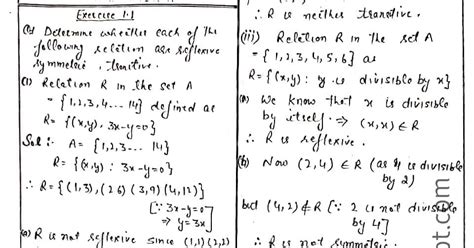 Exercise 1.1
(Q) Determine whether each of the
following relation are reflexive
symmetric, transitive.
(i) Relation R in the set A
= {1,2,3,4.... 14} defined as
R= {(x,y): 3x-y=0}
Sol: A= {1,2,3.... 14}
R= {(x,y): 3x-y=0}
∴ R= {(1,3),(2 6) (3,9) (4,12)}
[∵ 3x-y=0
⇒ y=3x]
(a) R is not reflexive since (1,1)(2,2)
∴ R is neither transitive.
(iii) Relation R in the set A
= {1,2,3,4,5,6} as
R= {(x,y): y is divisible by x}
(a) We know that x is divisible
by itself. ⇒ (x,x) ∈ R
∴ R is reflexive.
(b) Now (2,4) ∈ R (as 4 is divisible
by 2)
but (4,2) ∉ R [∵ 2 is not divisible
by 4]
∴ R is not symmetric.
ot.com